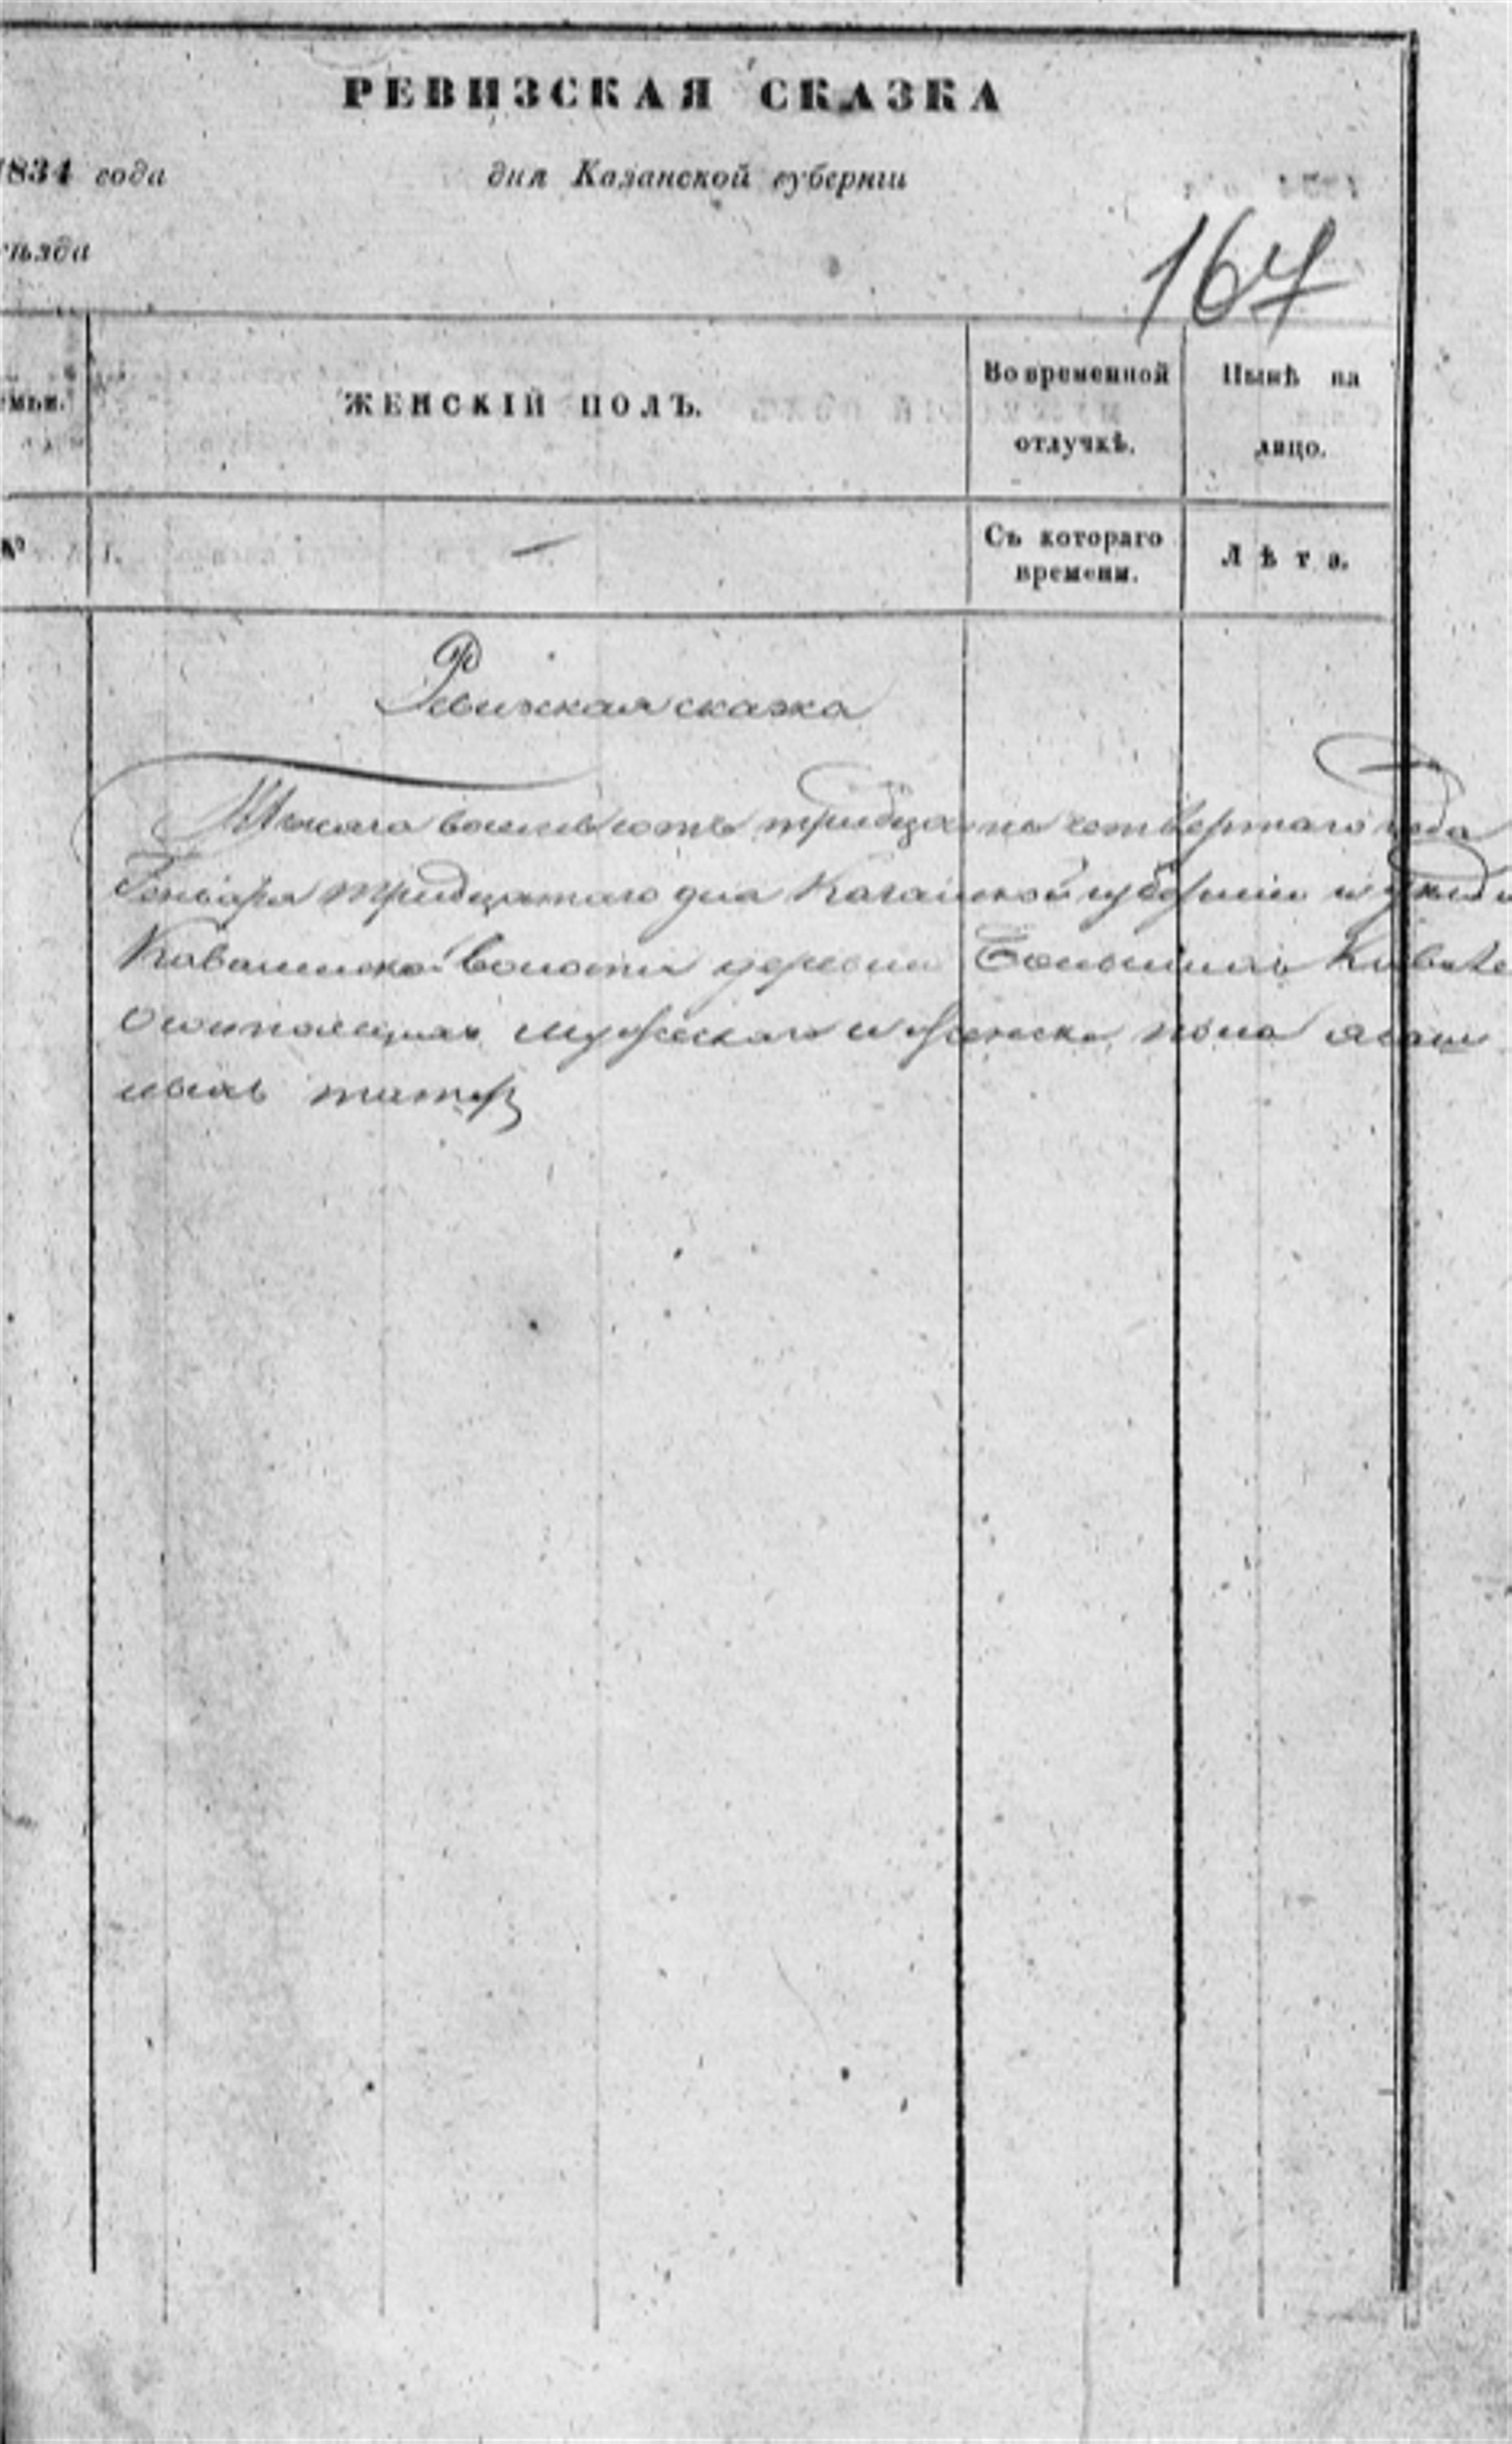 РЕВИЗСКАЯ СКАЗКА
1834 года дня Казанской губерніи
уѣзда
167
ЖЕНСКІЙ ПОЛЪ.
Во временной
отлучкѣ.
Нынѣ на
лицо.
№
Съ котораго
времени.
Лѣта.
Ревижская сказка
Тысяча восемь сотъ тридцать четвертаго года
Генваря тридцатаго дня Казанской губерніи и уезда
Кавалинской волости деревни
о состоящихъ мужеска и женска пола ясаш
ныхъ татар